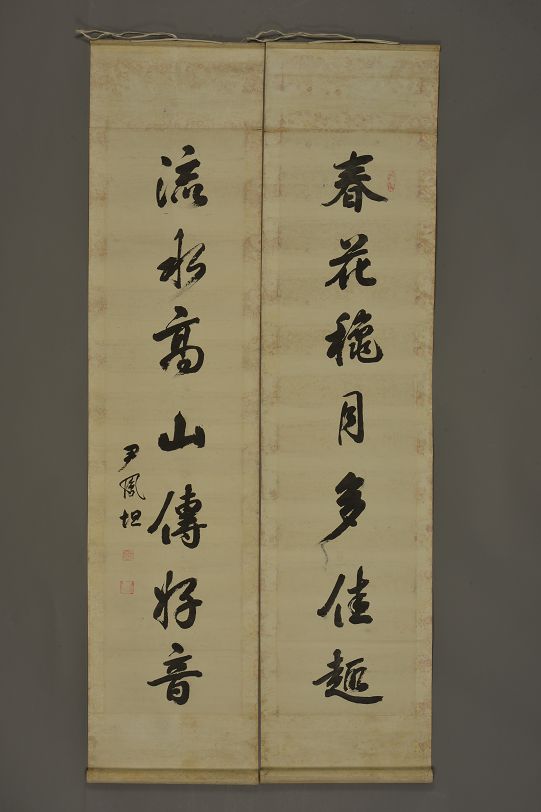 春花穐月多佳趣
流水高山傳好音
尹鳳坦